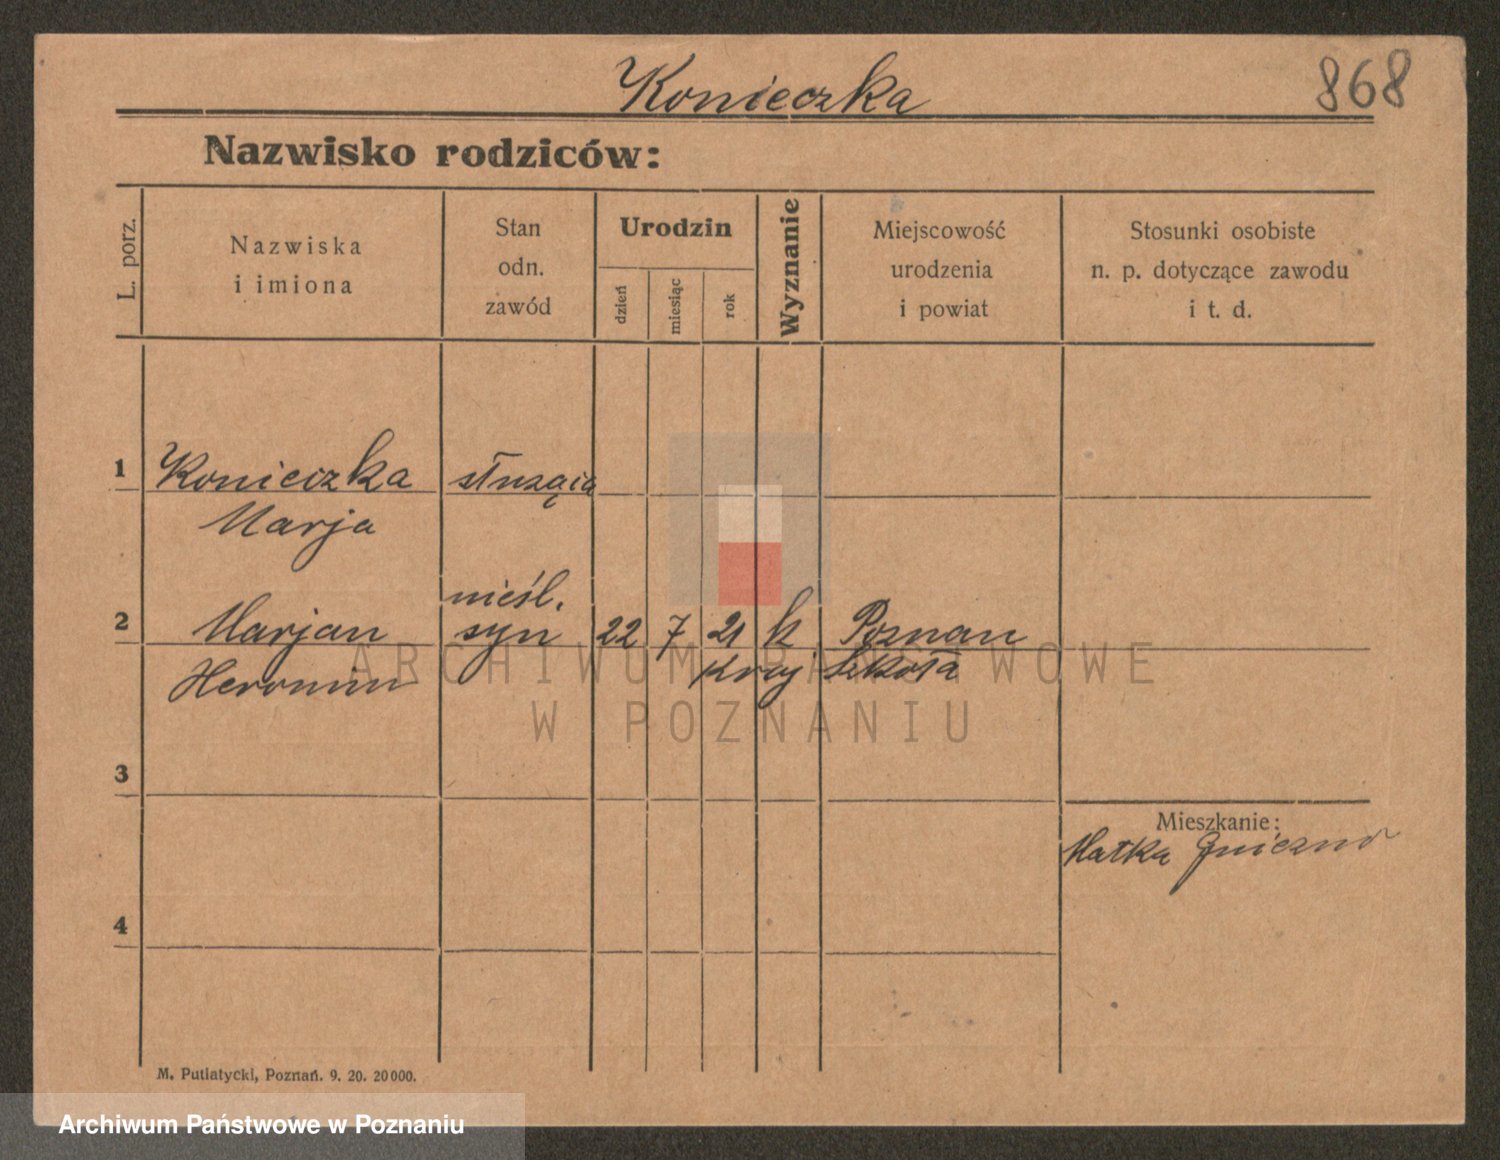 Konieczka 868
Nazwisko rodziców:
L. porz.
Nazwiska
i imiona
Stan
odn.
zawód
Urodzin
dzień
miesiąc
rok
Wyznanie
Miejscowość
urodzenia
i powiat
Stosunki osobiste
n. p. dotyczące zawodu
i t. d.
1 Konieczka służąca
Marja
nieśl.
2 Marjan syn 22 7 21 k Poznan
Heronim Kraj Szkoła
ARCHIWUM PAŃSTWOWE
W POZNANIU
3
Mieszkanie:
Matka Gniezno
4
M. Putiatycki, Poznań. 9. 20. 20000.
Archiwum Państwowe w Poznaniu